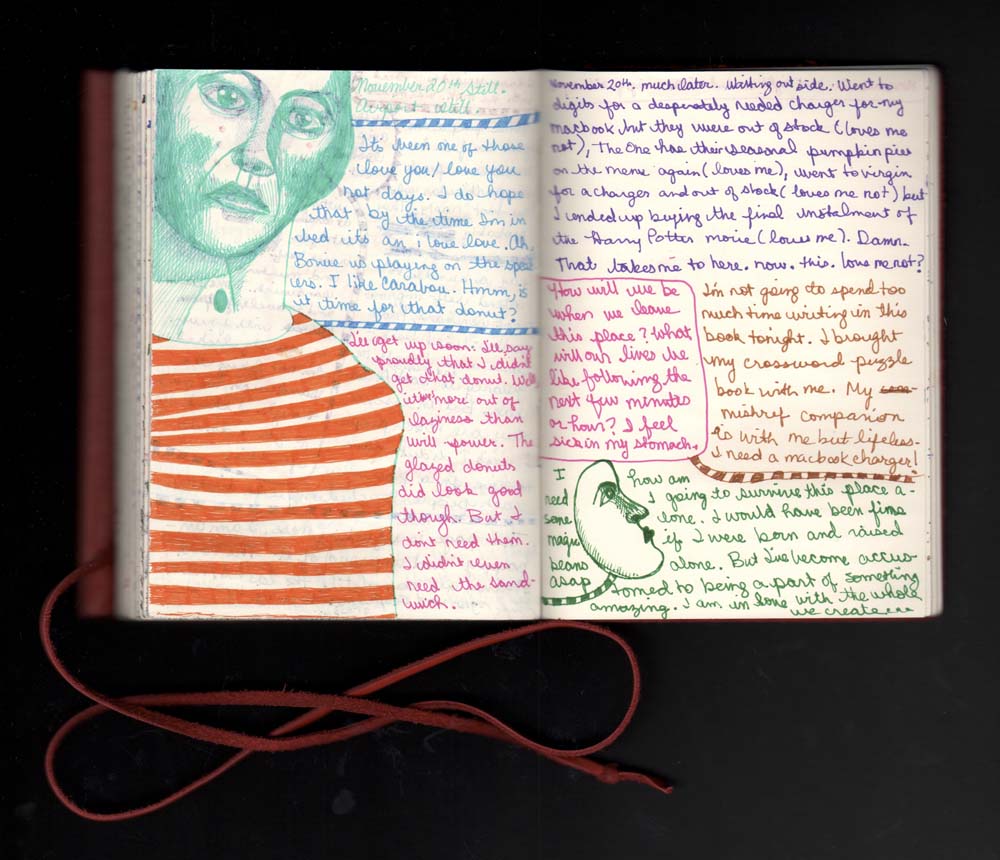 November 20th Still.
Airport still
It's been one of those
love you/love you
not days. I do hope
that by the time I'm in
bed its an i love love. Ah,
is playing on the speak
ers. I like Carabou. Hmm, is
it time for that donut?
I'll get up soon. I'll say
proudly that I didn't
get that donut. Well
it was more out of
laziness than
will power. The
glazed donuts
did look good
though. But I
dont need them.
I didn't even
need the sand-
wich.
November 20th, much later. Waiting out side. Went to
digits for a desperately needed charger for my
macbook but they were out of stock (loves me
not), The One has their seasonal pumpkin pies
on the menu again (loves me), went to virgin
for a charger and out of stock (loves me not) but
I ended up buying the final instalment of
the Harry Potter movie (loves me). Damn.
That takes me to here. now. this. love me not?
How will we be
when we leave
this place? What
will our lives be
like following the
next few minutes
or hours? I feel
sick in my stomach.
I'm not going to spend too
much time writing in this
book tonight. I brought
my crossword puzzle
book with me. My
companion
is with me but lifeless-
I need a macbook charger!
I
need
some
magic
beans
asap
how am
I going to survive this place a-
lone. I would have been fine
if I were born and raised
alone. But I've become accus-
tomed to being a part of something
amazing. I am in love with the whole
we create...